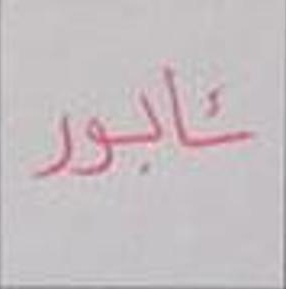 شابور